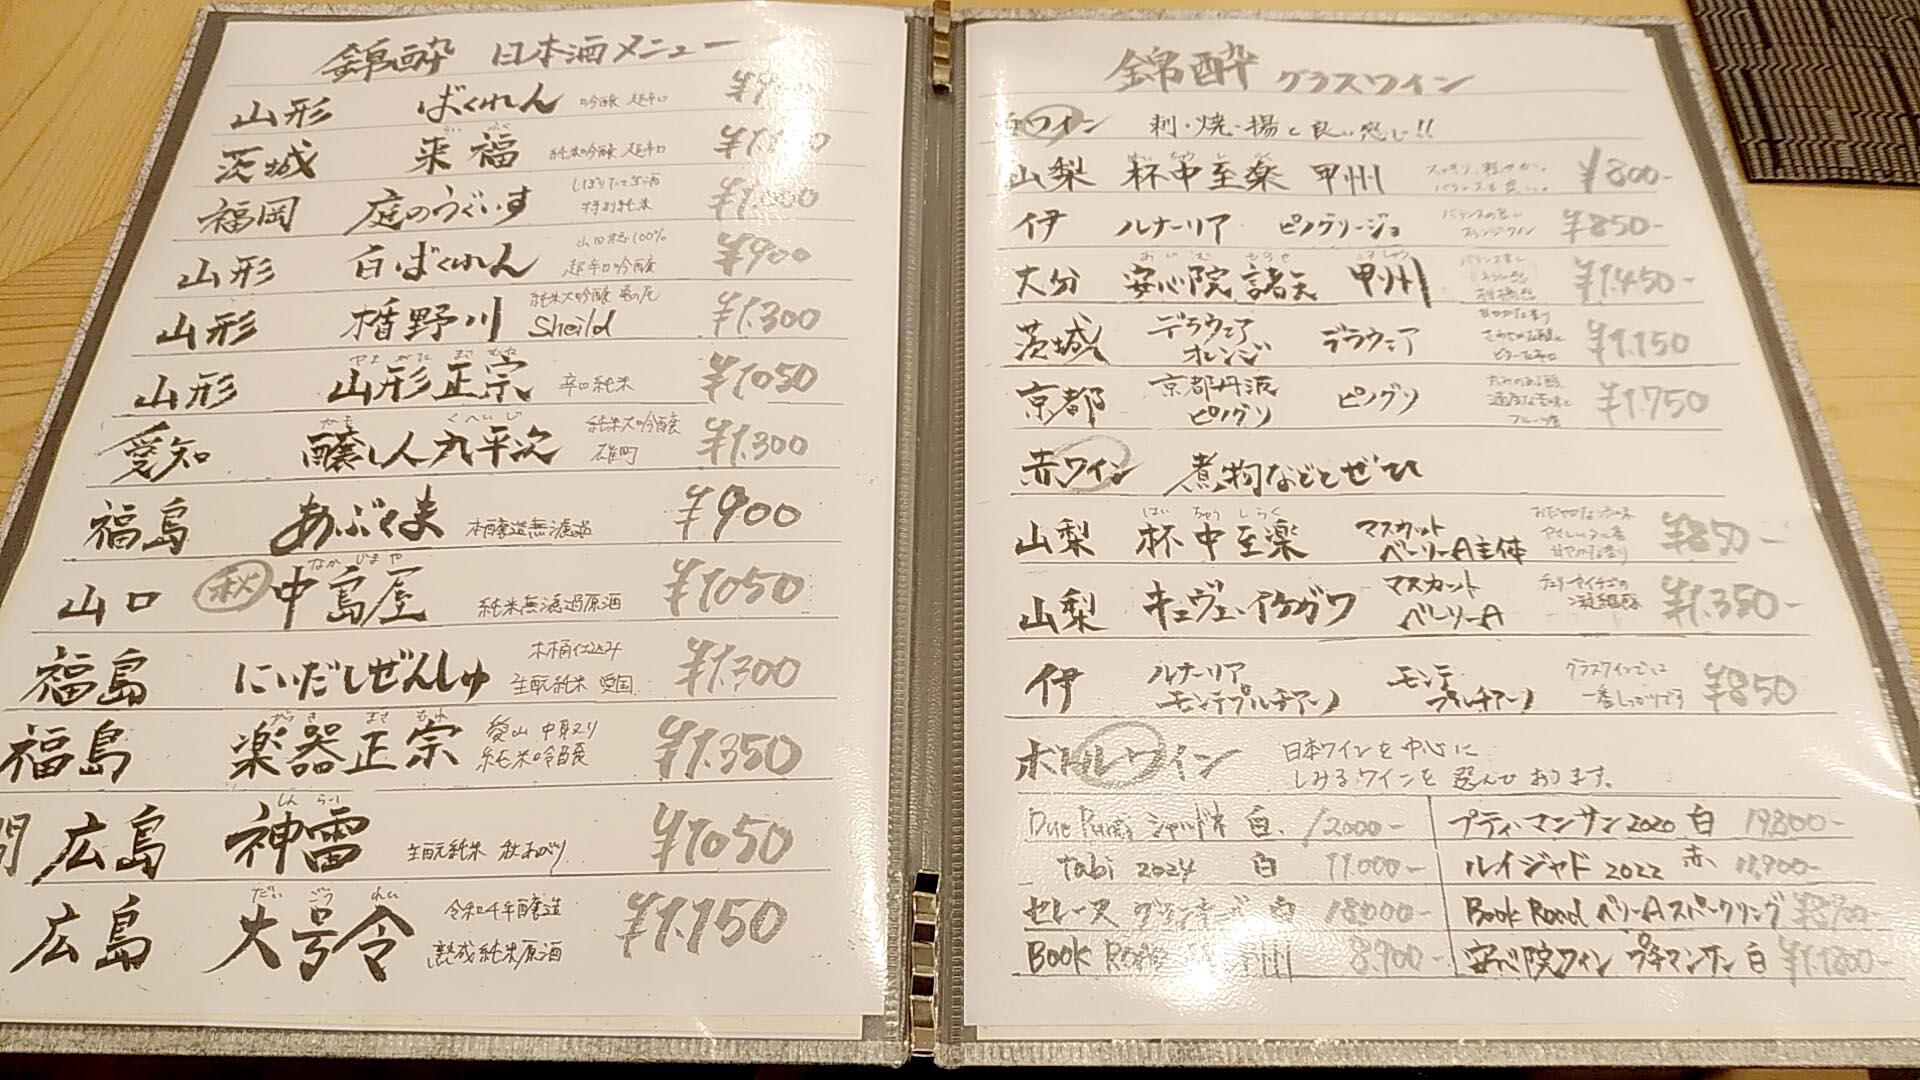 錦酔 日本酒メニュー
山形 ばくれん 吟醸 超辛口
茨城 来福 純米吟醸 超辛口
らい ふく
福岡 庭のうぐいす しぼりたて生酒 特別純米 ¥1,000
山形 白ばくれん 山田穂100% 超辛口吟醸 ¥900
山形 楯野川 純米大吟醸 Sheild ¥1.300
やま がた まさ むね
山形 山形正宗 辛口純米 ¥1050
かも くへいじ
愛知 醸し人九平次 純米大吟醸 雄町 ¥1.300
福島 あぶくま 本醸造無濾過 ¥900
なか じま や
山口 秋 中島屋 純米無濾過原酒 ¥1050
福島 にいだしぜんしゅ 木桶仕込み 生酛純米 愛国 ¥1.300
がっき まさ むね
福島 楽器正宗 愛山 中取り 純米吟醸 ¥1.350
しん らい
広島 神雷 生酛純米 秋あがり ¥1050
だい ごう れい
広島 大号令 令和4年醸造 熟成純米原酒 ¥1.150
錦酔 グラスワイン
白ワイン 刺・焼・揚と良い感じ!!
山梨 杯中至楽 甲州 スッキリ、軽やか。バランスも良い。 ¥800-
伊 ルナーリア ピノグリージョ バランスの良い ¥850-
あじむ もろや こうしゅう
大分 安心院 諸矢 甲州 ¥1.450-
茨城 デラウェア オレンジ デラウェア ¥1.150
京都 京都丹波 ピノグリ ピノグリ ¥1.750
赤ワイン 煮物などとぜひ
はい ちゅう しらく
山梨 杯中至楽 マスカットベーリーA主体 ¥850-
山梨 キュヴェ・イケガワ マスカットベーリーA ¥1.350-
伊 ルナーリア モンテプルチアーノ モンテプルチアーノ グラスワインでは一番しっかりです ¥850
ボトルワイン 日本ワインを中心に
しみるワインを選んであります。
シャルドネ 白 12000-
プティ・マンサン 2020 白 19.800-
tabi 2024 白 11.000-
ルイジャド 2022 赤
白 18.000-
Book Road ベリーAスパークリング
Book Road 甲州 8.900-
安心院ワイン プチマンサン 白 ¥1.1800-